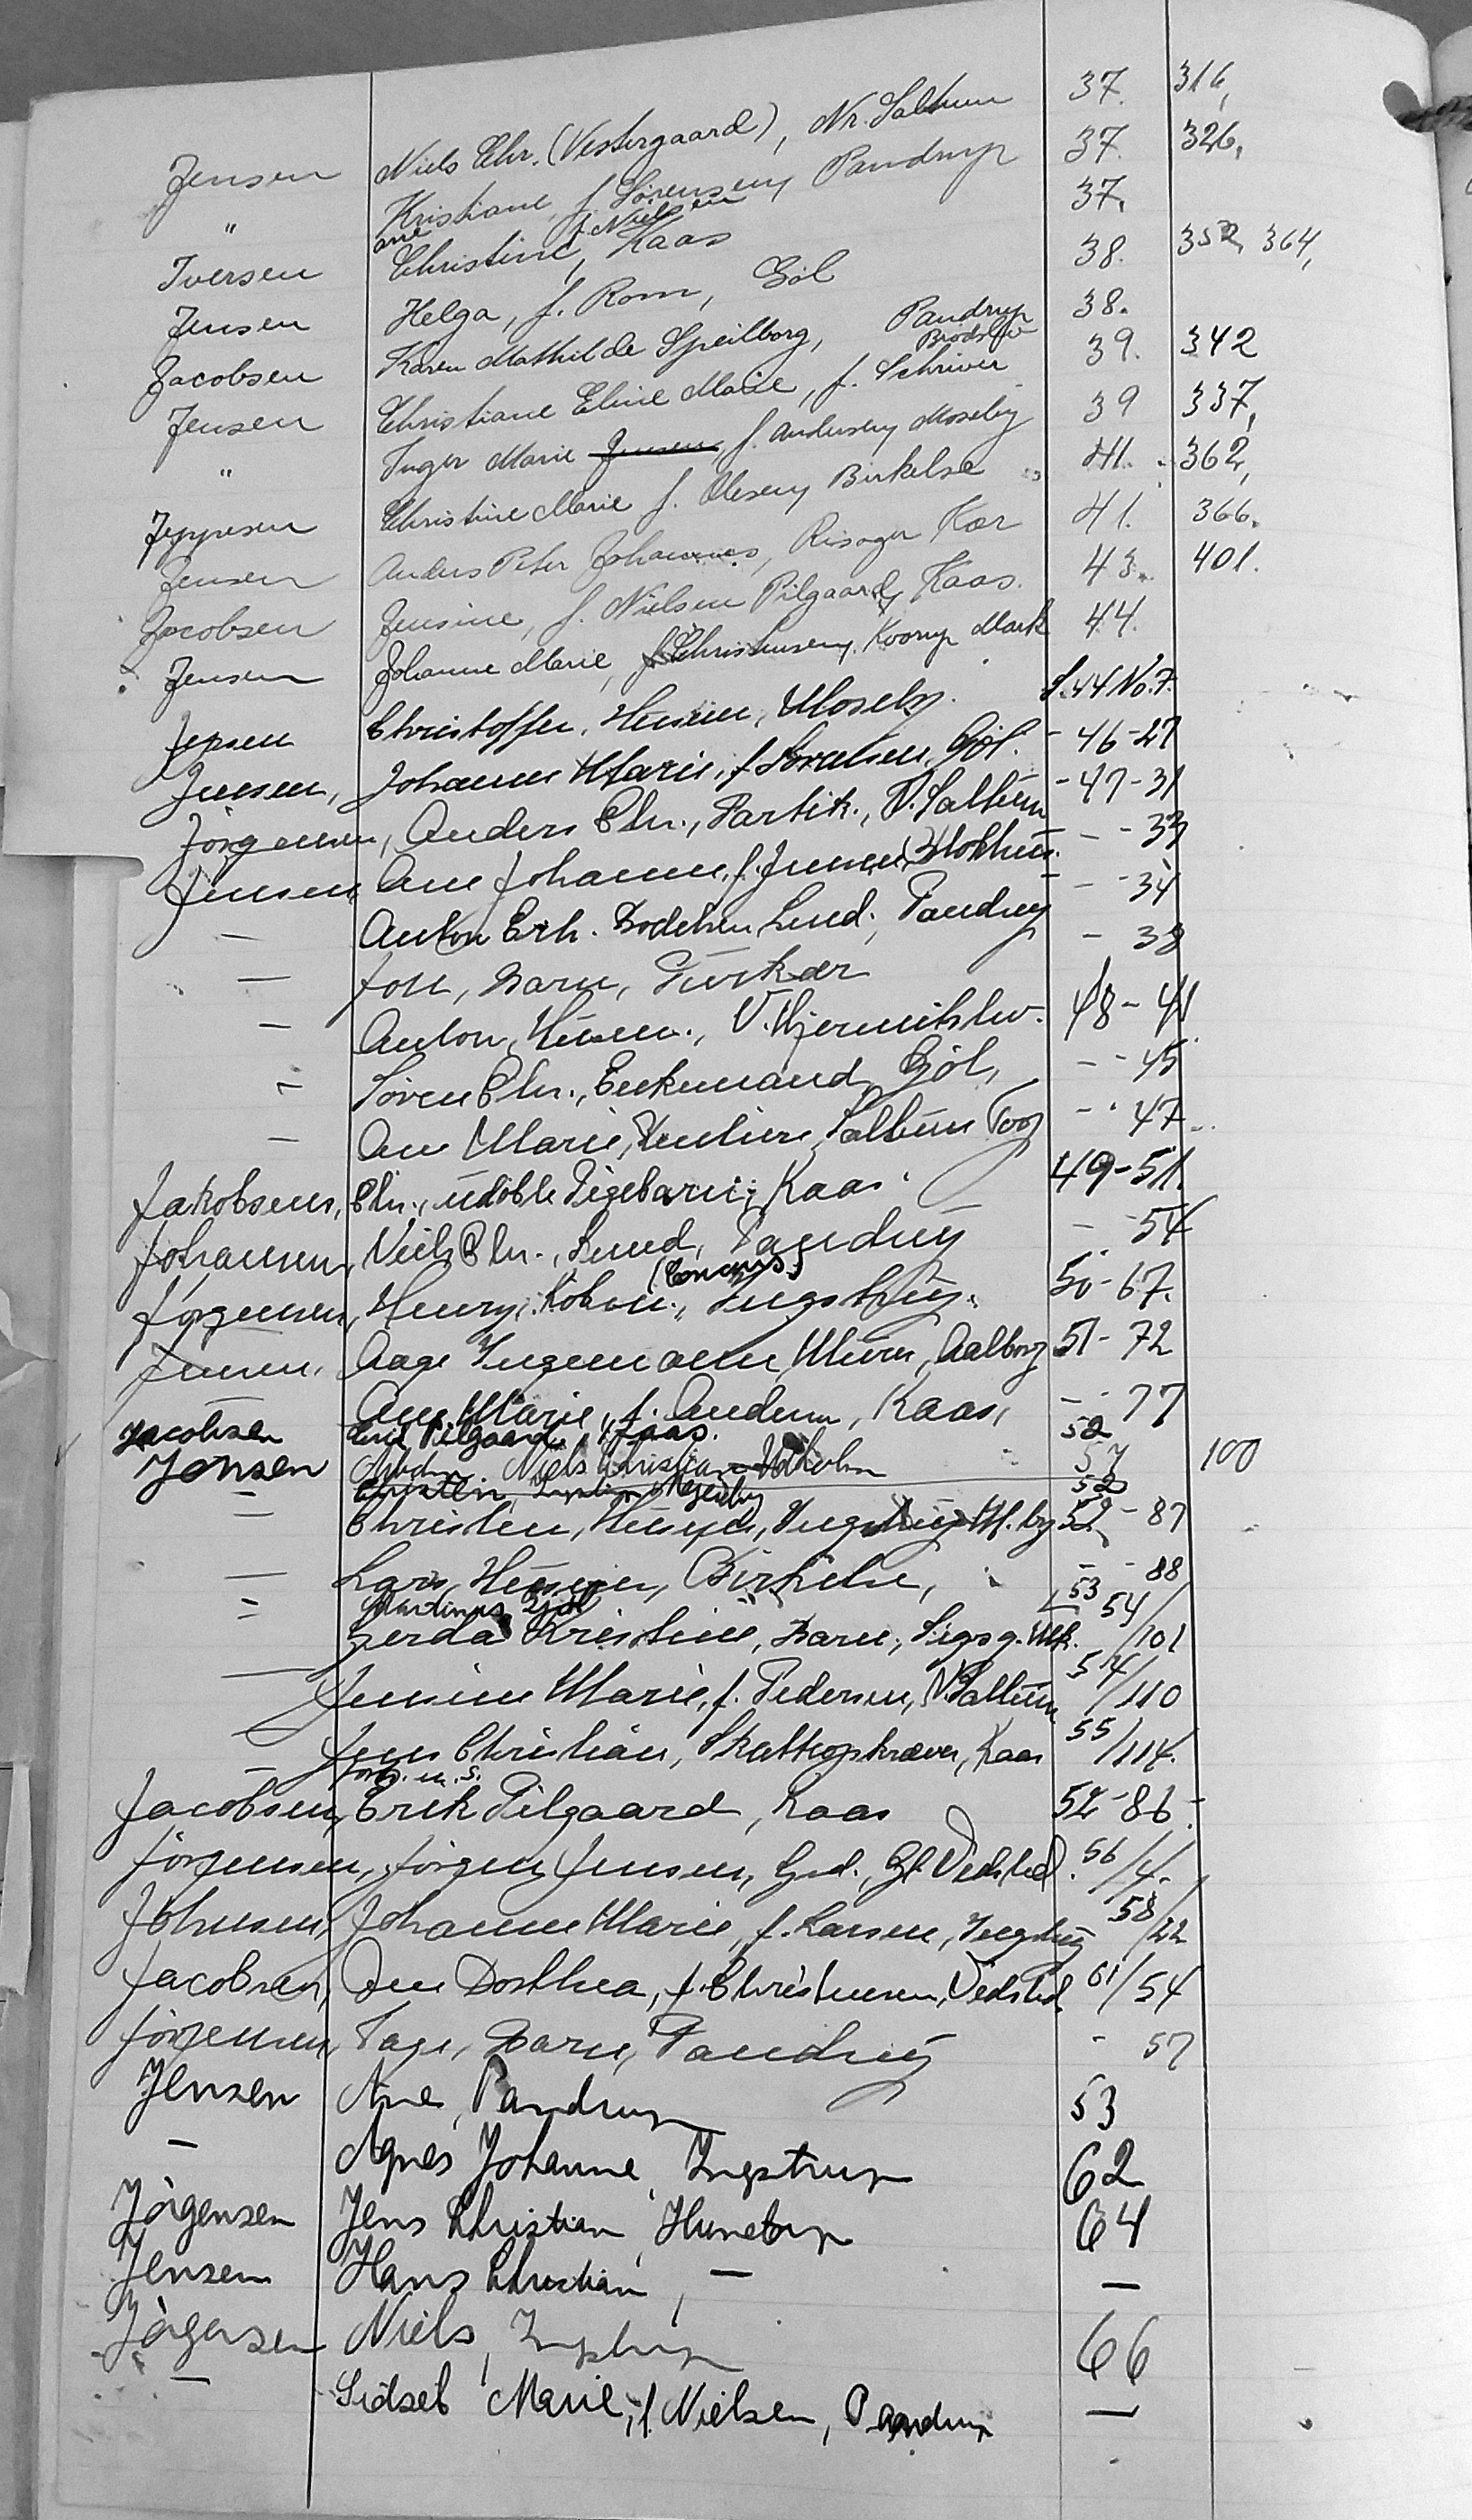 Jensen Niels Chr. (Vestergaard), Nr. Saltum 37. 316,
" Kristiane f. Sørensen, Pandrup 37. 326,
Iversen Ane Christine, f. Nielsen Kaas 37.
Jensen Helga, f. Rom, Gøl 38. 352, 364,
Jacobsen Karen Mathilde Speilborg, Pandrup 38.
Jensen Christiane Eline Marie, f. Schriver Brødslev 39. 342
" Inger Marie Jensen, f. Andersen, Moseby 39 337,
Jeppesen Christine Marie f. Olesen, Birkelse 41. 362,
Jensen Anders Peter Johannes, Risager Kær 41. 366.
Jacobsen Jensine, f. Nielsen Pilgaard, Kaas. 43. 401.
Jensen Johanne Marie, f. Christensen, Kvorup Mark 44.
Jepsen Christoffer, Husm., Moseby. S. 44 No. 7.
Jensen, Johanne Marie, f. Gøl. - 46-27
Jörgensen, Anders Chr., Partik., N. Saltum - 47-31
Jensen, Ane Johanne, f. Jensen, Blokhus. - - 33
— Anton Erh. Lund, Pandrup - - 34
— Barn, - 38
— Anton, Husm., V. Hjermitslev. 48-41
— Søren Chr., Enkemand, Gjøl, - - 45
— Ane Marie, Rentiere, Saltum - - 47
Jakobsen, Chr., udøbt Pigebarn, Kaas. 49-51.
Johansen, Niels Chr., Lund, Pandrup - - 54
Jørgensen, Henry, Købm., Ingstrup. 50-67.
Jensen, Aage Ingemann, Murer, Aalborg 51-72
— Ane Marie, f. Andersen, Kaas, - - 77
Jacobsen Erik Pilgaard, Kaas. 52
Jensen Niels Christian 57 100
Ingstrup 52
— Christen, Ingstrup 52 - 87
— Lars, Birkelse, - - 88
= Martinus Gjøl 53
Gerda Kristine, Barn, 54/101
— Jensine Marie, f. Pedersen, N. Saltum 54/110
— Jens Christian, Skatteopkræver, Kaas 55/114.
Jacobsen, Erik Pilgaard, Kaas 52-86.
Jörgensen, Jörgen Jensen, Grd., Gl. Vedsted. 56/4.
Johnsen, Johanne Marie, f. Larsen, Ingstrup 58/22
Jacobsen, Ane Dorthea, f. Christensen, Vedsted 61/54
Jörgensen, Tage, Barn, Pandrup - 57
Jensen Ane, Pandrup 53
— Agnes Johanne, Ingstrup 62
Jörgensen Jens Christian, Hunetorp 64
Jensen Hans Christian, — —
Jörgensen Niels, Ingstrup 66
— Sidsel Marie, f. Nielsen, Pandrup —